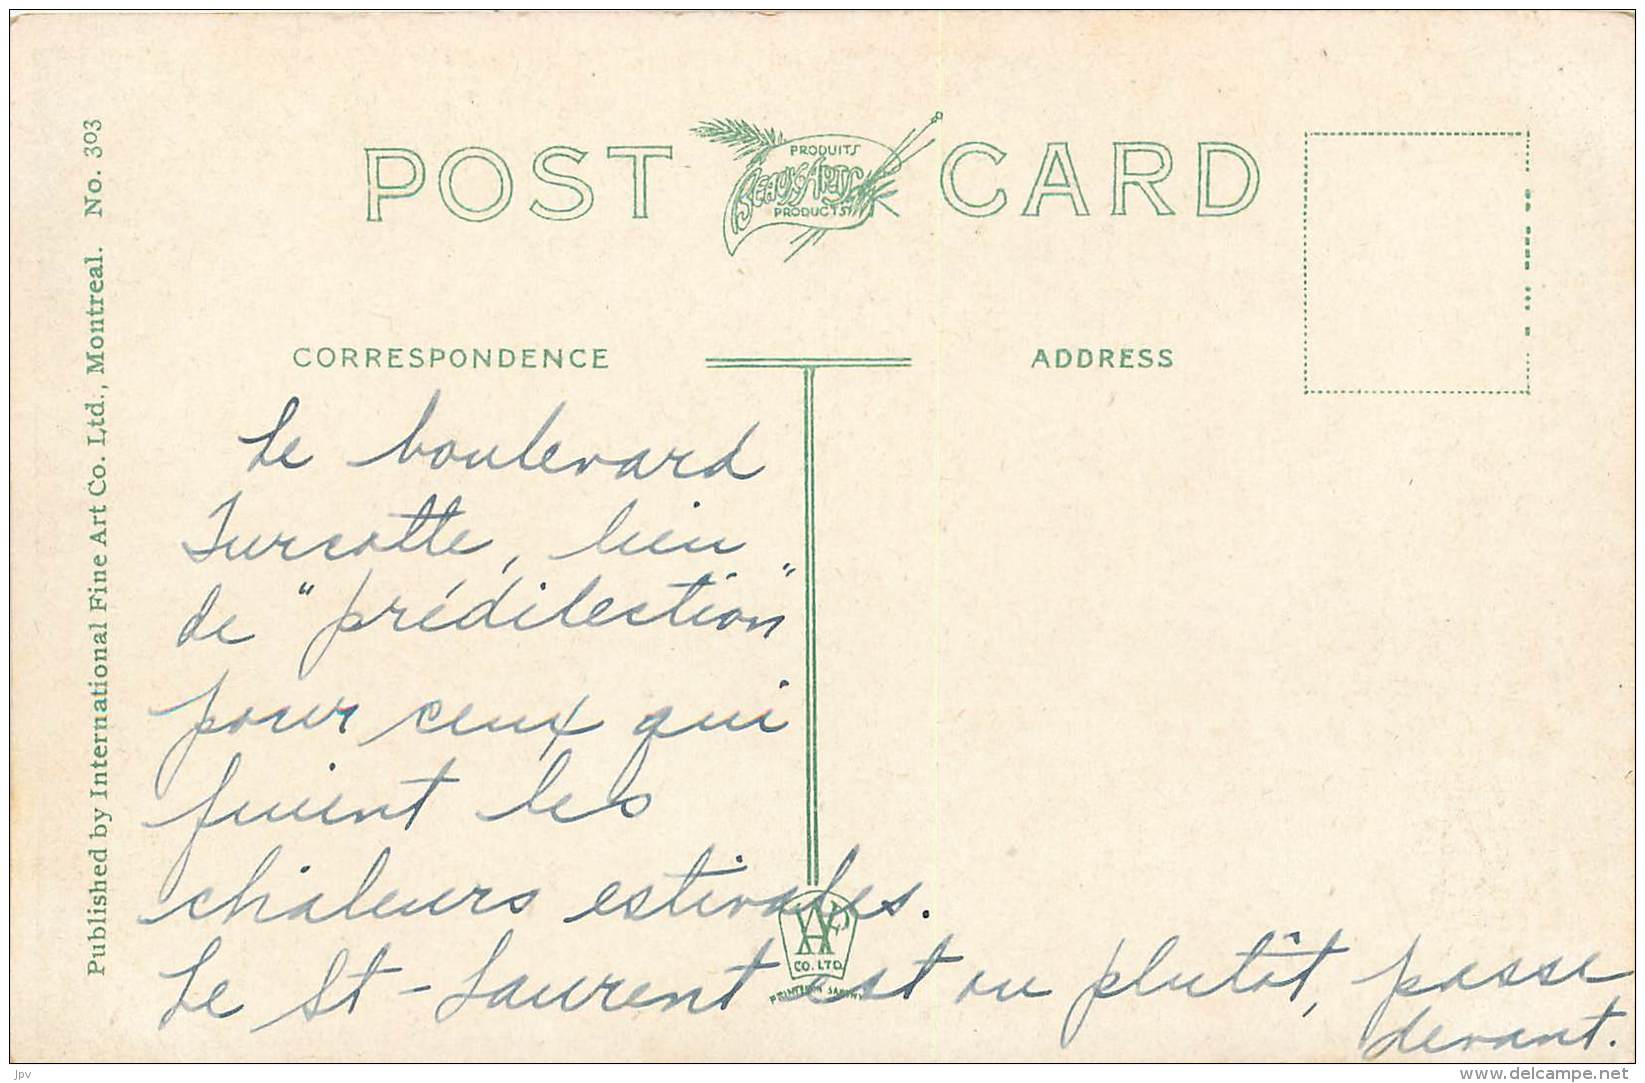 POST CARD
PRODUITS
BEAUX ARTS
PRODUCTS
Published by International Fine Art Co. Ltd., Montreal. No. 303
CORRESPONDENCE
ADDRESS
Le boulevard
Turcotte, lieu
de "prédilection"
pour ceux qui
fuient les
chaleurs estivales.
Le St-Laurent est ou plutôt, passe
devant.
CO. LTD
PRINTED IN SAXONY
- jpv -
www.delcampe.net